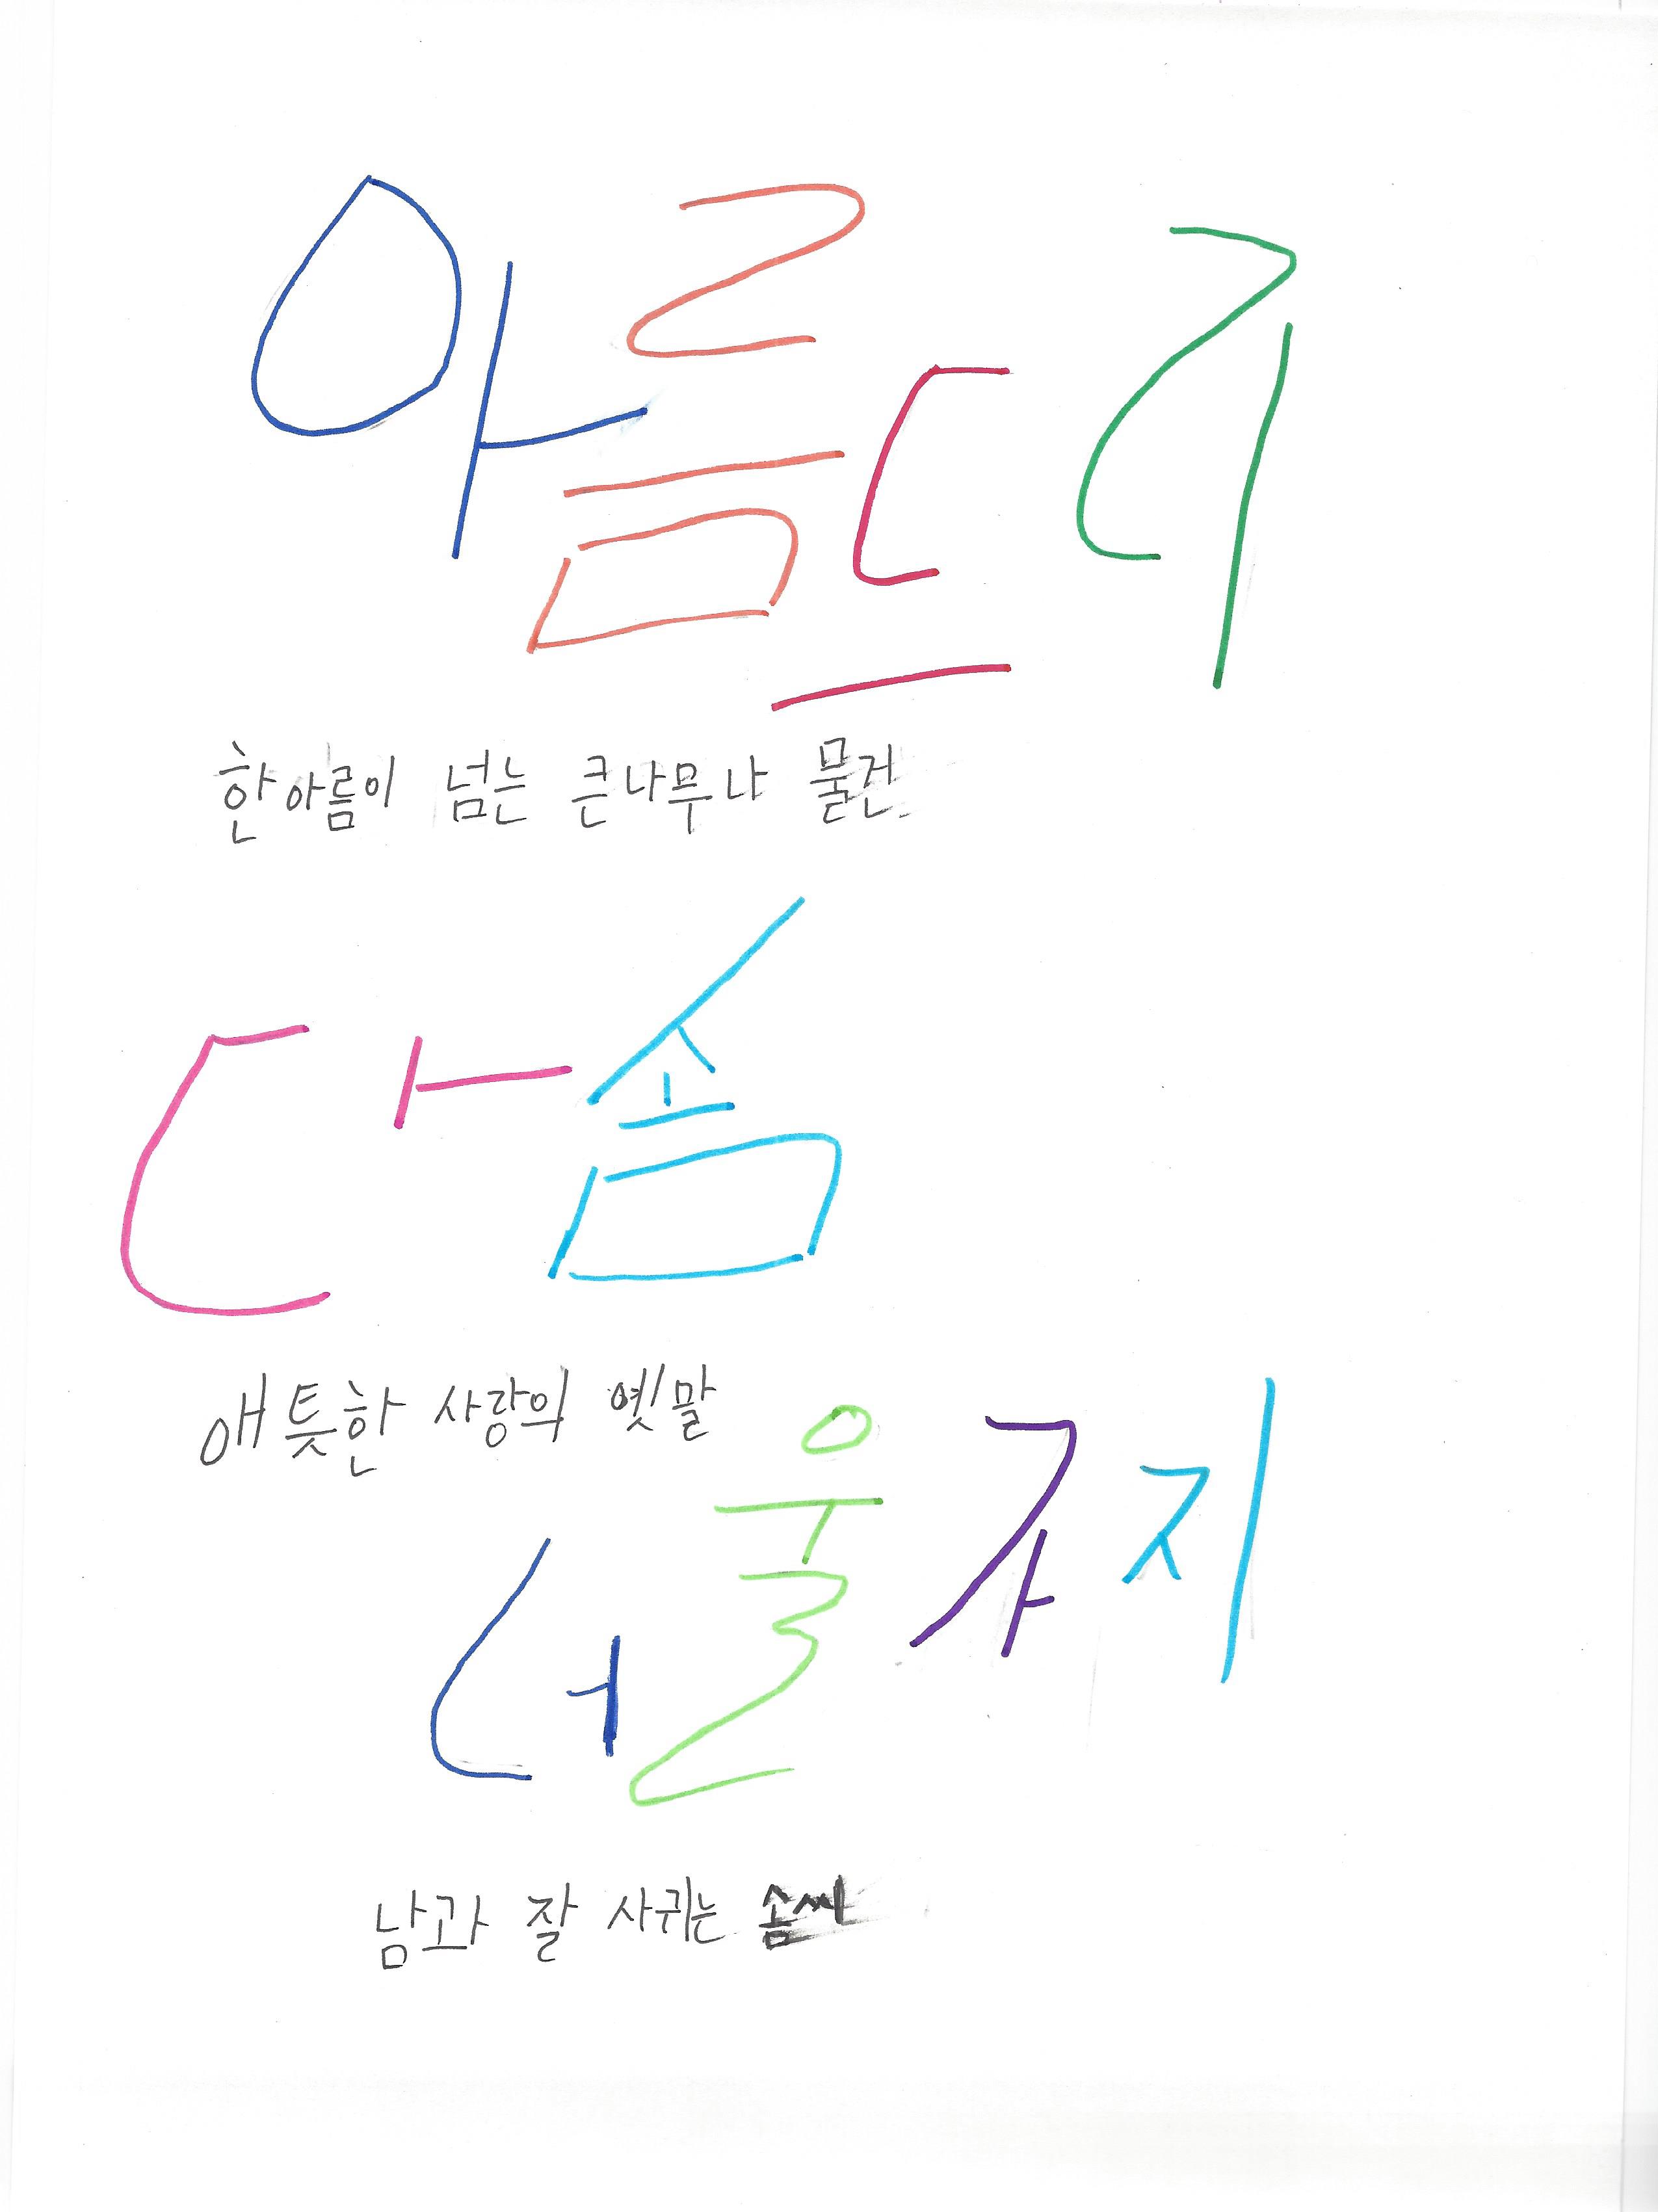 아름드리
한아름이 넘는 큰나무나 물건.
다솜
애틋한 사랑의 옛말
너울가지
남과 잘 사귀는 솜씨